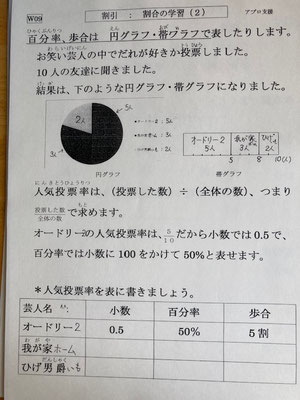 W09
割引 : 割合の学習(2)
アプロ支援
百分率、歩合は 円グラフ・帯グラフで表したりします。
お笑い芸人の中でだれが好きか投票しました。
10人の友達に聞きました。
結果は、下のような円グラフ・帯グラフになりました。
5人
2人
3人
オードリー2 : 5人
オードリー2 5人
我が家 3人
ひげ 2人
5 8 10(人)
円グラフ
帯グラフ
人気投票率は、(投票した数)÷(全体の数)、つまり
投票した数/全体の数 で求めます。
オードリー2の人気投票率は、5/10だから小数では0.5で、
百分率では小数に100をかけて50%と表せます。
*人気投票率を表に書きましょう。
芸人名 小数 百分率 歩合
オードリー2 0.5 50% 5割
我が家ホーム
ひげ男爵いも